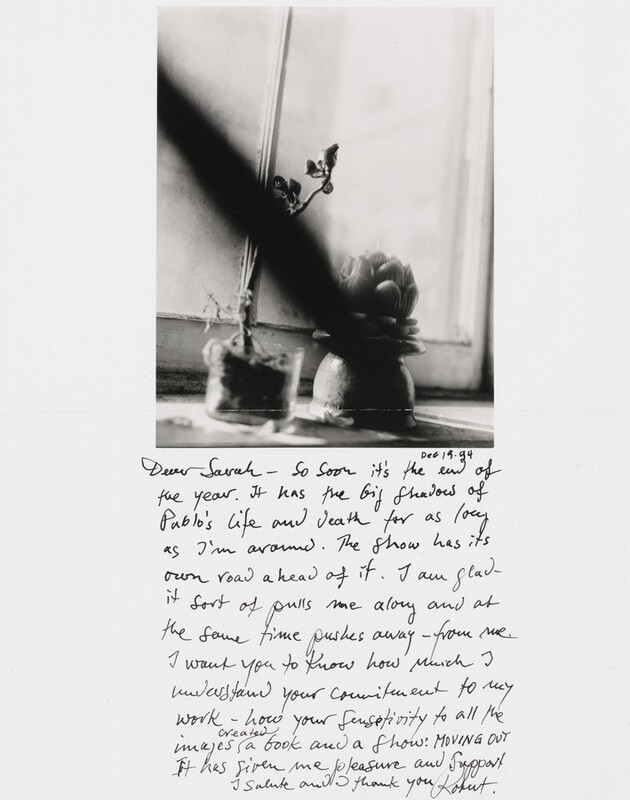 Dec 19. 94
Dear Sarah – So soon it's the end of
the year. It has the big shadow of
Pablo's life and death for as long
as I'm around. The show has its
own road ahead of it. I am glad –
it sort of pulls me along and at
the same time pushes away – from me.
I want you to know how much I
understand your commitment to my
work – how your sensitivity to all the
images created a book and a show: MOVING OUT
It has given me pleasure and support
I salute and I thank you Robert.